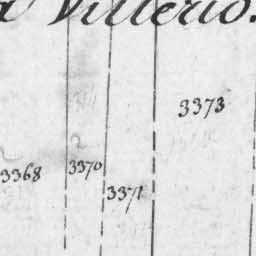 Villerio.
3373
3368
3370
3371